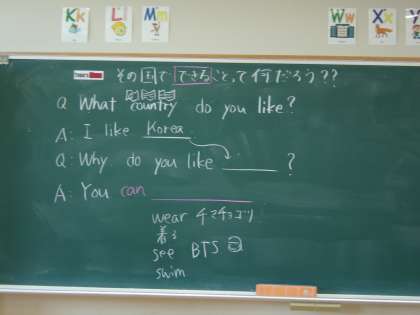 Kk
Ll
Mm
Ww
Xx
その国で できる ことって何だろう??
Q What country do you like?
A: I like Korea.
Q: Why do you like ____ ?
A: You can ____
wear チマチョゴリ
着る
see BTS
swim